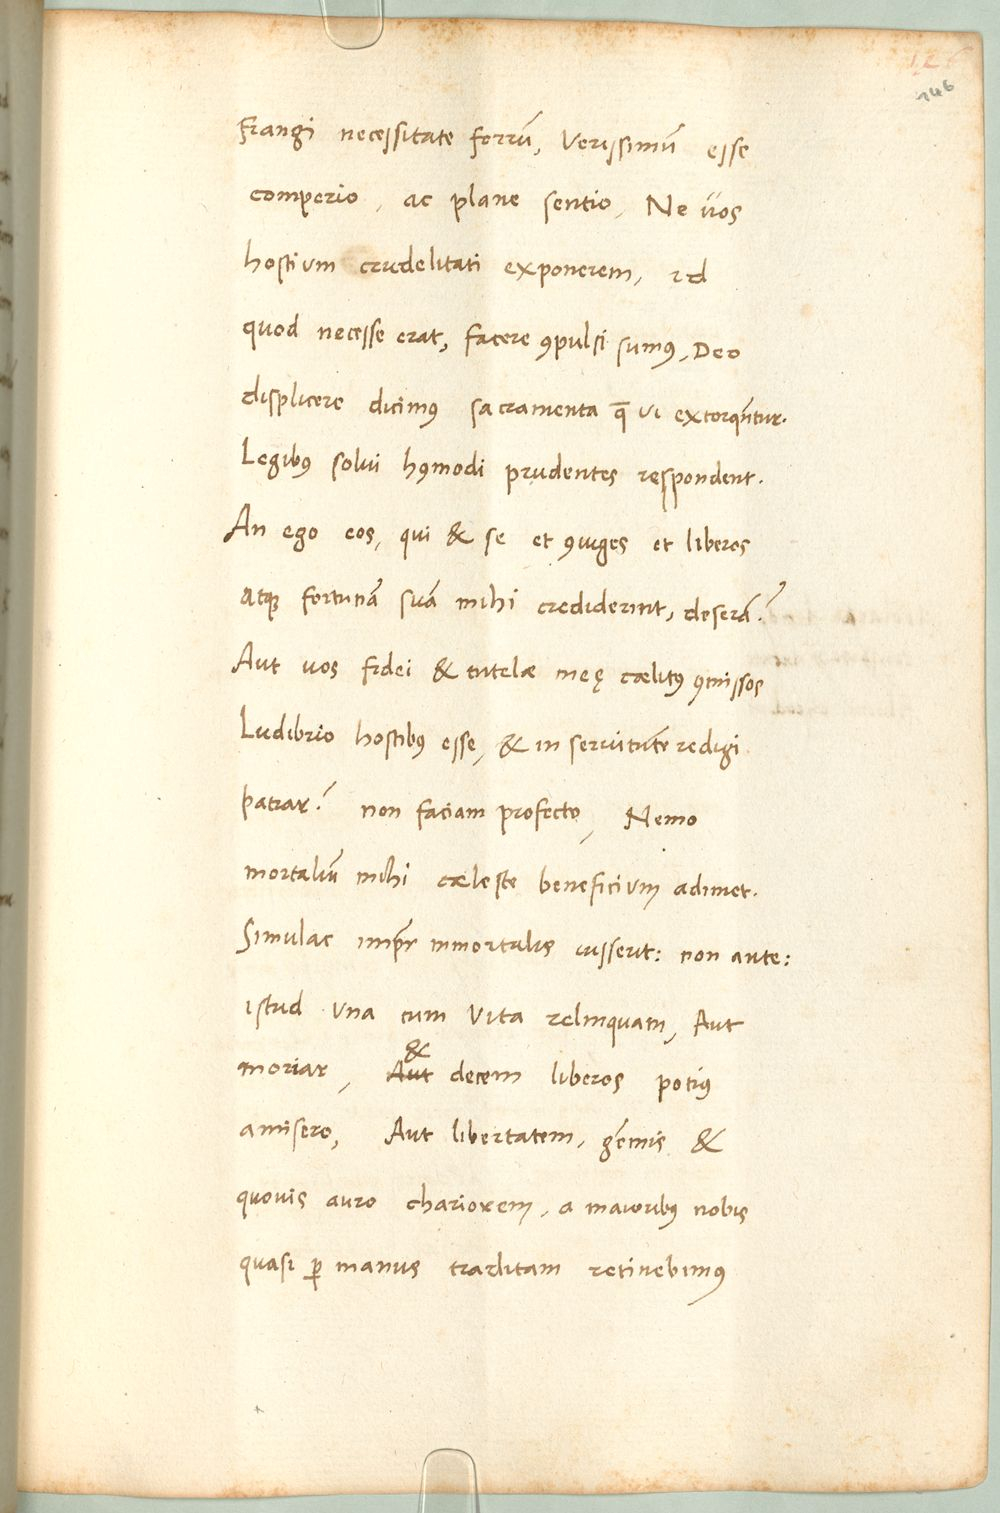 126
146
frangi necessitate ferrū, Verissimū esse
comperio, ac plane sentio, Ne vos
hostium crudelitati exponerem, id
quod necesse erat, facere ꝯpulsi sumꝰ, Deo
displicere dicimꝰ sacramenta q̄ vi extorqn̄tur.
Legibꝰ solui hꝰmodi prudentes respondent.
An ego eos, qui & se et ꝯiuges et liberos
atqꝫ fortunā suā mihi crediderint, deserā?
Aut uos fidei & tutelæ meę cælitꝰ ꝯmissos
Ludibrio hostibꝰ esse, & in seruitutē redigi
patiar? non faciam profecto, Nemo
mortaliū mihi cæleste beneficium adimet.
Simulac imp̄r immortalis iusserit: non ante:
istud una cum vita relinquam, Aut
moriar, & Aut decem liberos potiꝰ
amisero, Aut libertatem, gēmis &
quouis auro chariorem, a maioribꝰ nobis
quasi ꝑ manus traditam retinebimꝰ